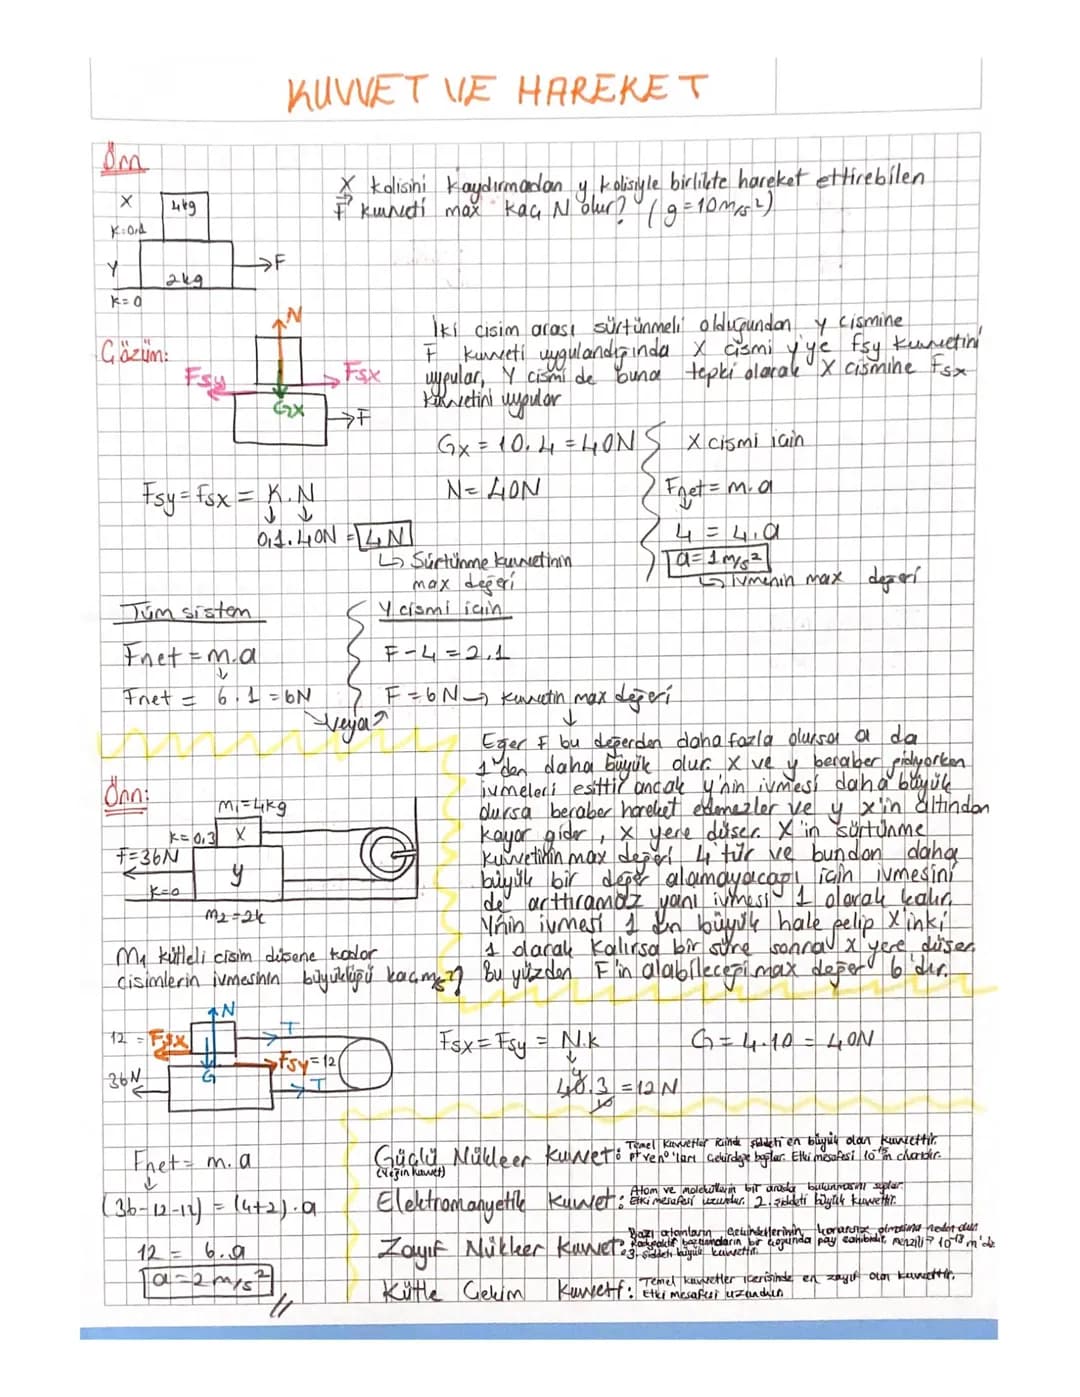 KUVVET VE HAREKET
Örn
X kolisini kaydırmadan y kolisiyle birlikte hareket ettirebilen
F kuvveti max kaç N olur? (g=10m/s²)
X
4kg
K=0,1
Y
2kg
K=0
F
Çözüm:
N
Fsy
Fsx
Gx
F
İki cisim arası sürtünmeli olduğundan y cismine
F kuvveti uygulandığında X cismi y'ye fsy kuvvetini
uygular, Y cismi de buna tepki olarak X cismine Fsx
kuvvetini uygular
Gx = 10.4 = 40N
X cismi için
Fsy = Fsx = K.N
N = 40N
Fnet = m.a
0,1.40N = 4N
4 = 4.a
Sürtünme kuvvetinin
max değeri
a = 1m/s²
ivmenin max değeri
Tüm sistem
Y cismi için
Fnet = m.a
F-4 = 2.1
Fnet = 6.1 = 6N
F = 6N → kuvvetin max değeri
veya
Eğer F bu değerden daha fazla olursa a da
1'den daha büyük olur. X ve y beraber gidiyorken
ivmeleri eşittir ancak y'nin ivmesi daha büyük
olursa beraber hareket edemezler ve y x'in altından
kayar gider, X yere düşer. X'in sürtünme
kuvvetinin max değeri 4'tür ve bundan daha
büyük bir değer alamayacağı için ivmesini
de arttıramaz yani ivmesi 1 olarak kalır.
Y'nin ivmesi 1 den büyük hale gelip X'inki
1 olarak kalırsa bir süre sonra x yere düşer.
Bu yüzden F'in alabileceği max değer 6'dır.
Örn:
m₁=4kg
K=0,3
X
F=36N
y
K=0
m₂=2k
M₁ kütleli cisim düşene kadar
cisimlerin ivmesinin büyüklüğü kaç m/s²?
N
12 = Fsx
T
Fsy=12
36N
G
T
Fsx = Fsy = N.k
G = 4.10 = 40N
40.3 = 12N
10
Fnet = m.a
(36-12-12) = (4+2).a
12 = 6.a
a = 2m/s²
Güçlü Nükleer Kuvvet: Temel kuvvetler içinde şiddeti en büyük olan kuvvettir.
(Yeğin kuvvet)
Elektromanyetik Kuvvet: Atom ve moleküllerin bir arada bulunmasını sağlar.
Etki mesafesi uzundur. 2. şiddeti büyük kuvvettir.
Zayıf Nükleer Kuvvet: Bazı atomların çekirdeklerinin kararsız olmasına neden olur.
3. şiddeti büyük kuvvettir.
Kütle Çekim Kuvveti: Temel kuvvetler içerisinde en zayıf olan kuvvettir.
Etki mesafesi uzundur